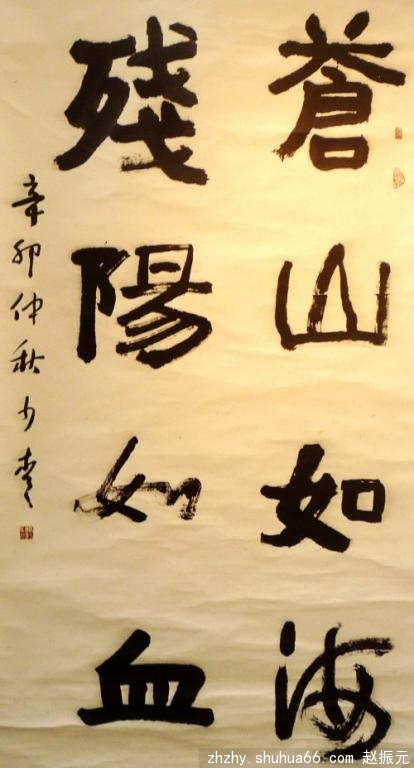 蒼山如海
殘陽如血
辛卯仲秋少書
zhzhy.shuhua66.com 赵振元